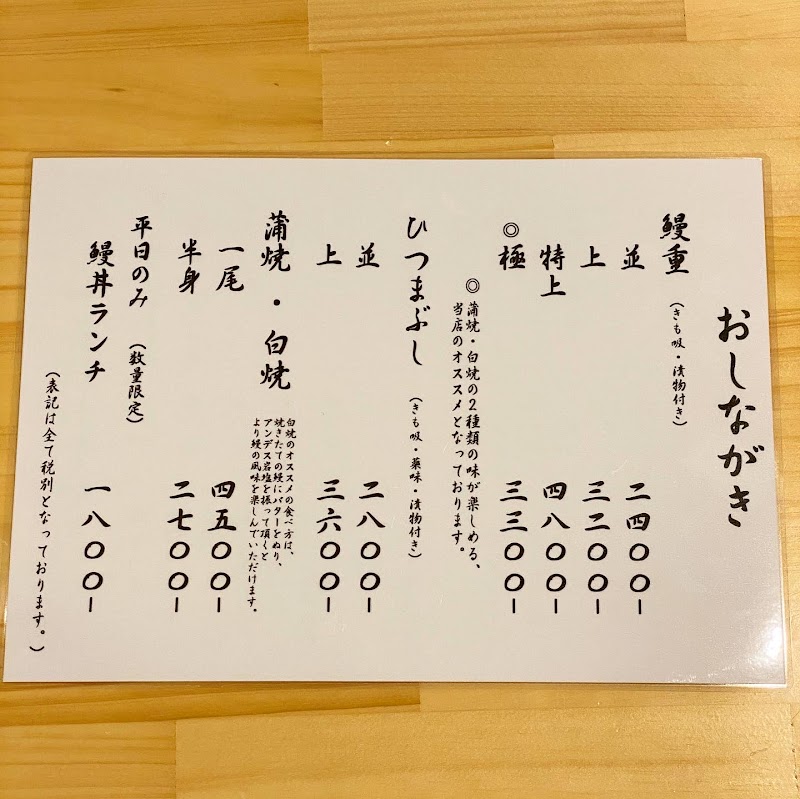 おしながき
鰻重 (きも吸・漬物付き)
並 二四〇〇-
上 三二〇〇-
特上 四八〇〇-
◎極 三三〇〇-
◎蒲焼・白焼の2種類の味が楽しめる、
当店のオススメとなっております。
ひつまぶし (きも吸・薬味・漬物付き)
並 二八〇〇-
上 三六〇〇-
蒲焼・白焼
白焼のオススメの食べ方は、
焼きたての鰻にバターをぬり、
アンデス岩塩を振って頂くと
より鰻の風味を楽しんでいただけます。
一尾 四五〇〇-
半身 二七〇〇-
平日のみ (数量限定)
鰻丼ランチ 一八〇〇-
(表記は全て税別となっております。)